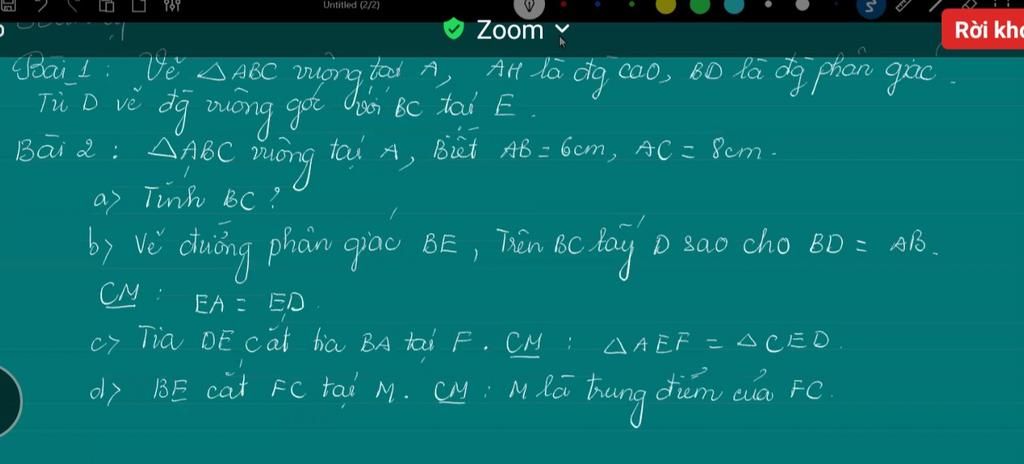 Untitled (2/2)
Zoom
Rời kh
Bài 1 : Vẽ △ABC vuông tại A, AH là đg cao, BD là đg phân giác.
Từ D vẽ đg vuông góc với BC tại E.
Bài 2 : △ABC vuông tại A, Biết AB = 6cm, AC = 8cm.
a> Tính BC?
b> Vẽ đường phân giác BE, Trên BC lấy D sao cho BD = AB.
CM : EA = ED.
c> Tia DE cắt tia BA tại F. CM : △AEF = △CED.
d> BE cắt FC tại M. CM : M là trung điểm của FC.